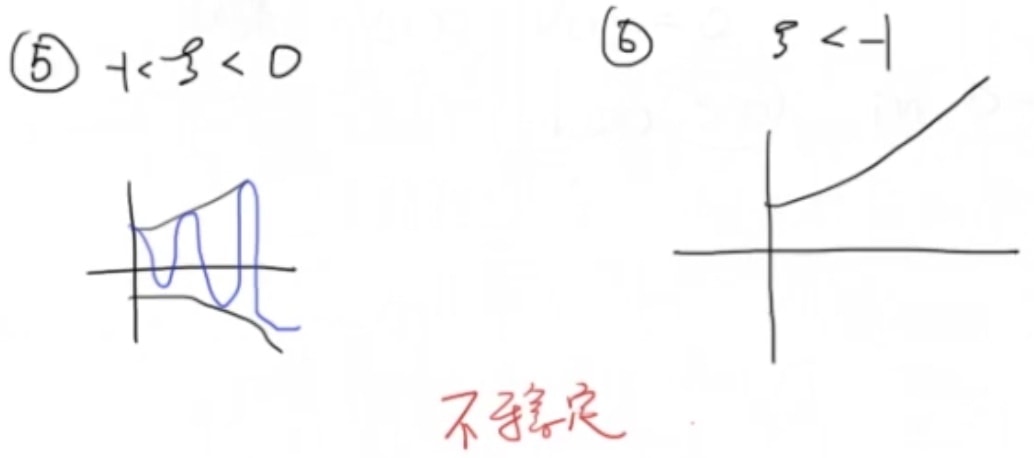 ⑤ -1 < ξ < 0
⑥ ξ < -1
不稳定